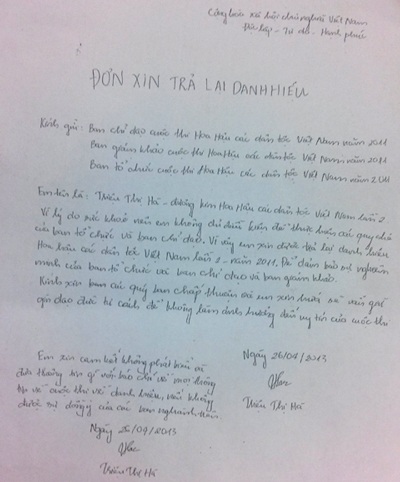 Cộng hòa xã hội chủ nghĩa Việt Nam
Độc lập - Tự do - Hạnh phúc
ĐƠN XIN TRẢ LẠI DANH HIỆU
Kính gửi: Ban chỉ đạo cuộc thi Hoa Hậu các dân tộc Việt Nam năm 2011
Ban giám khảo cuộc thi Hoa Hậu các dân tộc Việt Nam năm 2011
Ban tổ chức cuộc thi Hoa Hậu các dân tộc Việt Nam năm 2011
Em tên là: Triệu Thị Hà - đương kim Hoa Hậu các dân tộc Việt Nam lần 2.
Vì lý do sức khỏe nên em không đủ điều kiện để thực hiện các quy chế
của ban tổ chức và ban chỉ đạo. Vì vậy em xin được trả lại danh hiệu
Hoa hậu các dân tộc Việt Nam lần 2 - năm 2011. Để đảm bảo sự nghiêm
minh của ban tổ chức và ban chỉ đạo và ban giám khảo.
Kính xin ban các quý ban chấp thuận và em xin
để không làm ảnh hưởng đến uy tín của cuộc thi
Em xin cam kết không phát biểu và
đưa thông tin gì với báo chí về mọi thông
tin về cuộc thi và danh hiệu, nếu không
được sự đồng ý của các ban
Ngày 26/09/2013
Triệu Thị Hà
Ngày 26/09/2013
Triệu Thị Hà